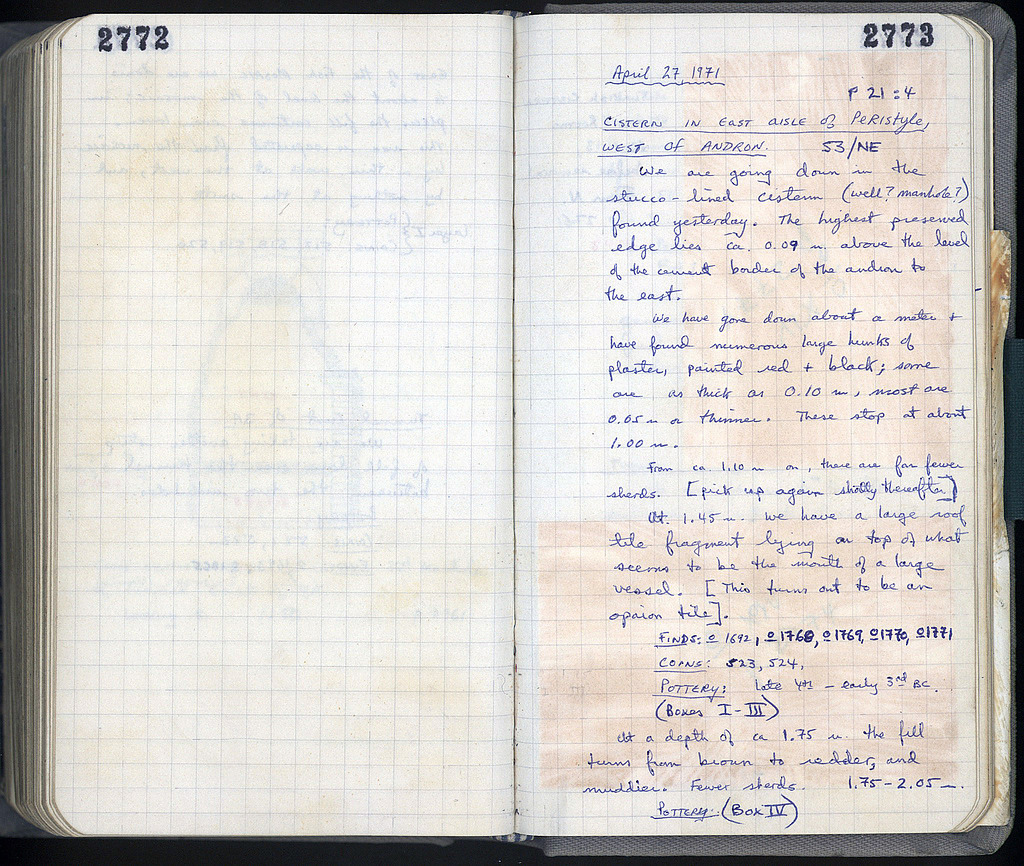 2772
2773
April 27 1971
P 21:4
CISTERN IN EAST AISLE of PERISTYLE,
WEST OF ANDRON. 53/NE
We are going down in the
stucco-lined cistern (well? manhole?)
found yesterday. The highest preserved
edge lies ca. 0.09 m. above the level
of the cement border of the andron to
the east.
We have gone down about a meter +
have found numerous large hunks of
plaster, painted red + black; some
are as thick as 0.10 m, most are
0.05 m or thinner. These stop at about
1.00 m.
From ca. 1.10 m on, there are far fewer
sherds. [pick up again shortly thereafter]
At 1.45 m. we have a large roof
tile fragment lying on top of what
seems to be the mouth of a large
vessel. [This turns out to be an
opaion tile].
FINDS: o 1692, o 1768, o 1769, o 1770, o 1771
COINS: 523, 524,
POTTERY: late 4th - early 3rd BC.
(Boxes I-III)
At a depth of ca 1.75 m. the fill
turns from brown to redder, and
muddier. Fewer sherds. 1.75-2.05 m.
POTTERY: (BOX IV)